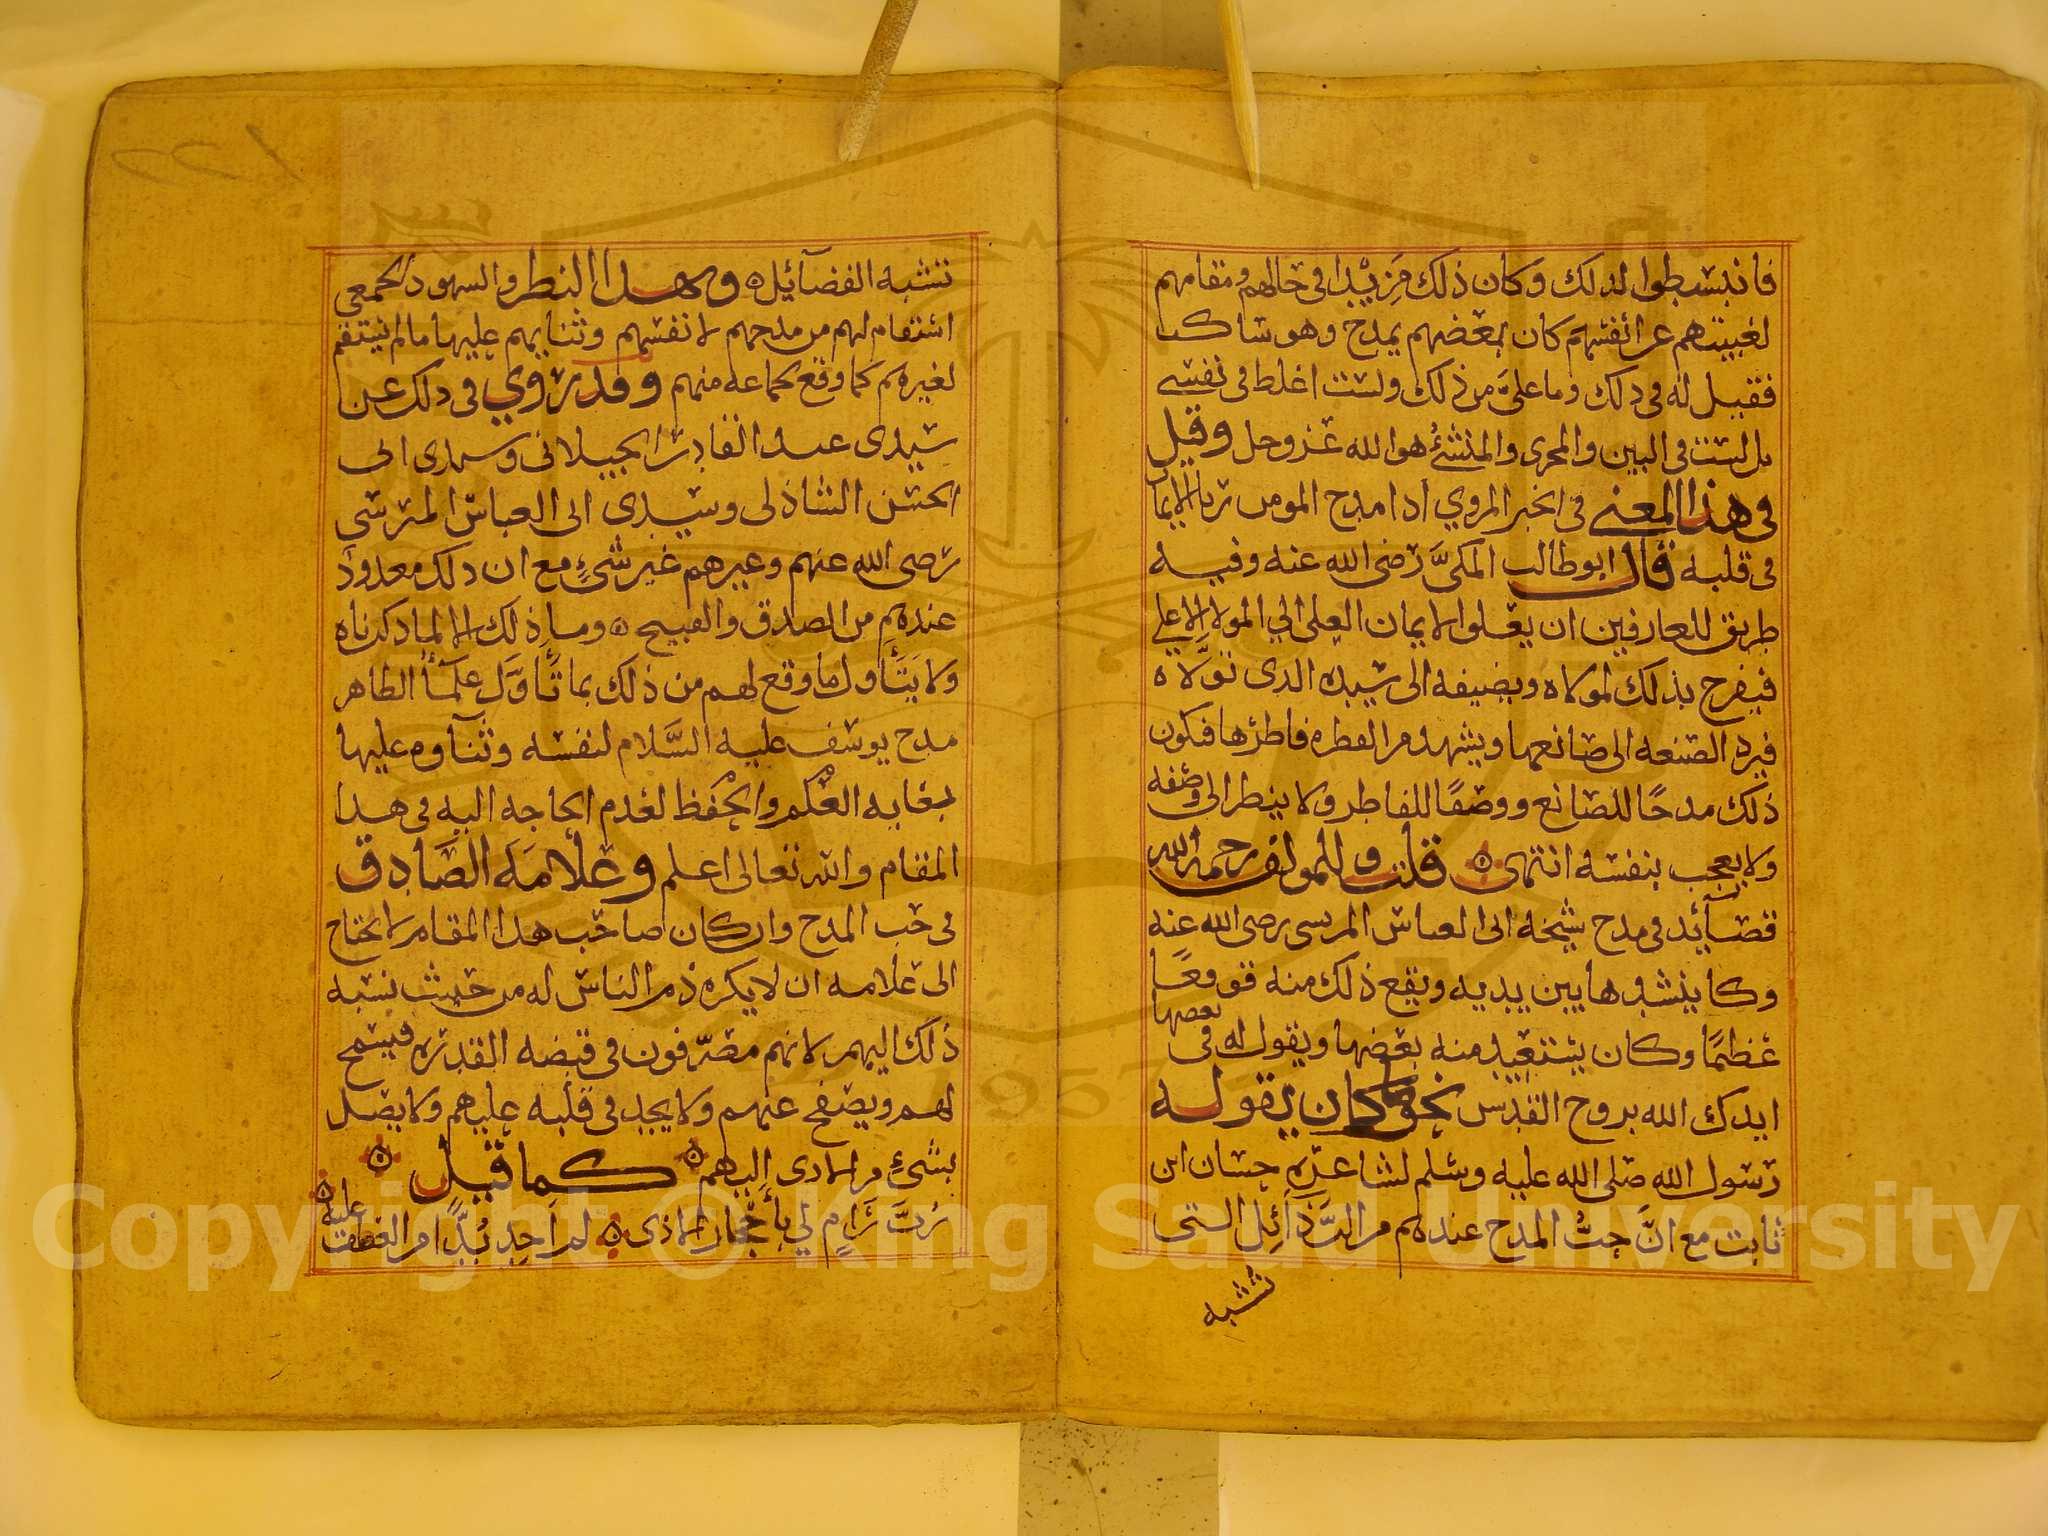 فانبسطوا لذلك وكان ذلك مزيدا في حالهم ومقامهم
لغيبتهم عن انفسهم كان بعضهم يمدح وهو ساكت
فقيل له في ذلك وما علىَّ من ذلك ولست اغلط في نفسي
بل لست في البين والمجرى والمنشئ هو الله عز وجل وقيل
في هذا المعنى في الخبر المروي اذا مدح المومن ربا الايمان
في قلبه قال ابو طالب المكىّ رضى الله عنه وفيه
طريق للعارفين ان يعلوا الايمان العلى الي المولا الاعلي
فيفرح بذلك لمولاه ويضيفه الى سيده الدى تولّاه
فيرد الصنعه الى صانعها ويشهد من الفطره فاطرها فيكون
ذلك مدحًا للصانع ووصفًا للفاطر ولا ينظر الى وصفه
ولا يعجب بنفسه انتهى قلت وللمولف رحمه الله
قصآئد في مدح شيخه ابى العباس المرسى رضى الله عنه
وكا ينشدها بين يديه ويقع ذلك منه موقعًا
عظيمًا وكان يستعيد منه بعضها ويقول له في بعضها
ايدك الله بروح القدس نحو ما كان يقوله
رسول الله صلى الله عليه وسلم لشاعره حسان ابن
ثابت مع انَّ حبَّ المدح عندهم من الرَّذآئل التى
تشبه
تشبه الفضآئل وهذا النظر والشهود الجمعي
استقام لهم من مدحهم لانفسهم وثنايهم عليها ما لم يستقم
لغيرهم كما وقع لجماعه منهم وقد روي في ذلك عن
سيدى عبد القادر الجيلانى وسيدى ابى
الحسن الشاذلى وسيدى ابى العباس المرسى
رضى الله عنهم وغيرهم غير شئٍ مع ان ذلك معدود
عندهم من الصدق والقبيح وما ذلك الا لما ذكرناه
ولا يتأول ما وقع لهم من ذلك بما تأوَّل علمآء الظاهر
مدح يوسف عليه السَّلام لنفسه وثنآوه عليها
بغايه العلم والحفظ لعدم الحاجه اليه في هذا
المقام والله تعالى اعلم وعلامة الصَّادق
في حب المدح وان كان صاحب هذا المقام لا يحتاج
الى علامه ان لا يكره ذم الناس له من حيث نسبه
ذلك اليهم لانهم مصرّفون في قبضه القدره فيسمح
لهم ويصفح عنهم ولا يجد في قلبه عليهم ولا يصل
بشئٍ من الاذى اليهم كما قيل
رُبَّ رَامٍ لي بأحجار الاذى لم اجد بُدًّا من العطف عليه